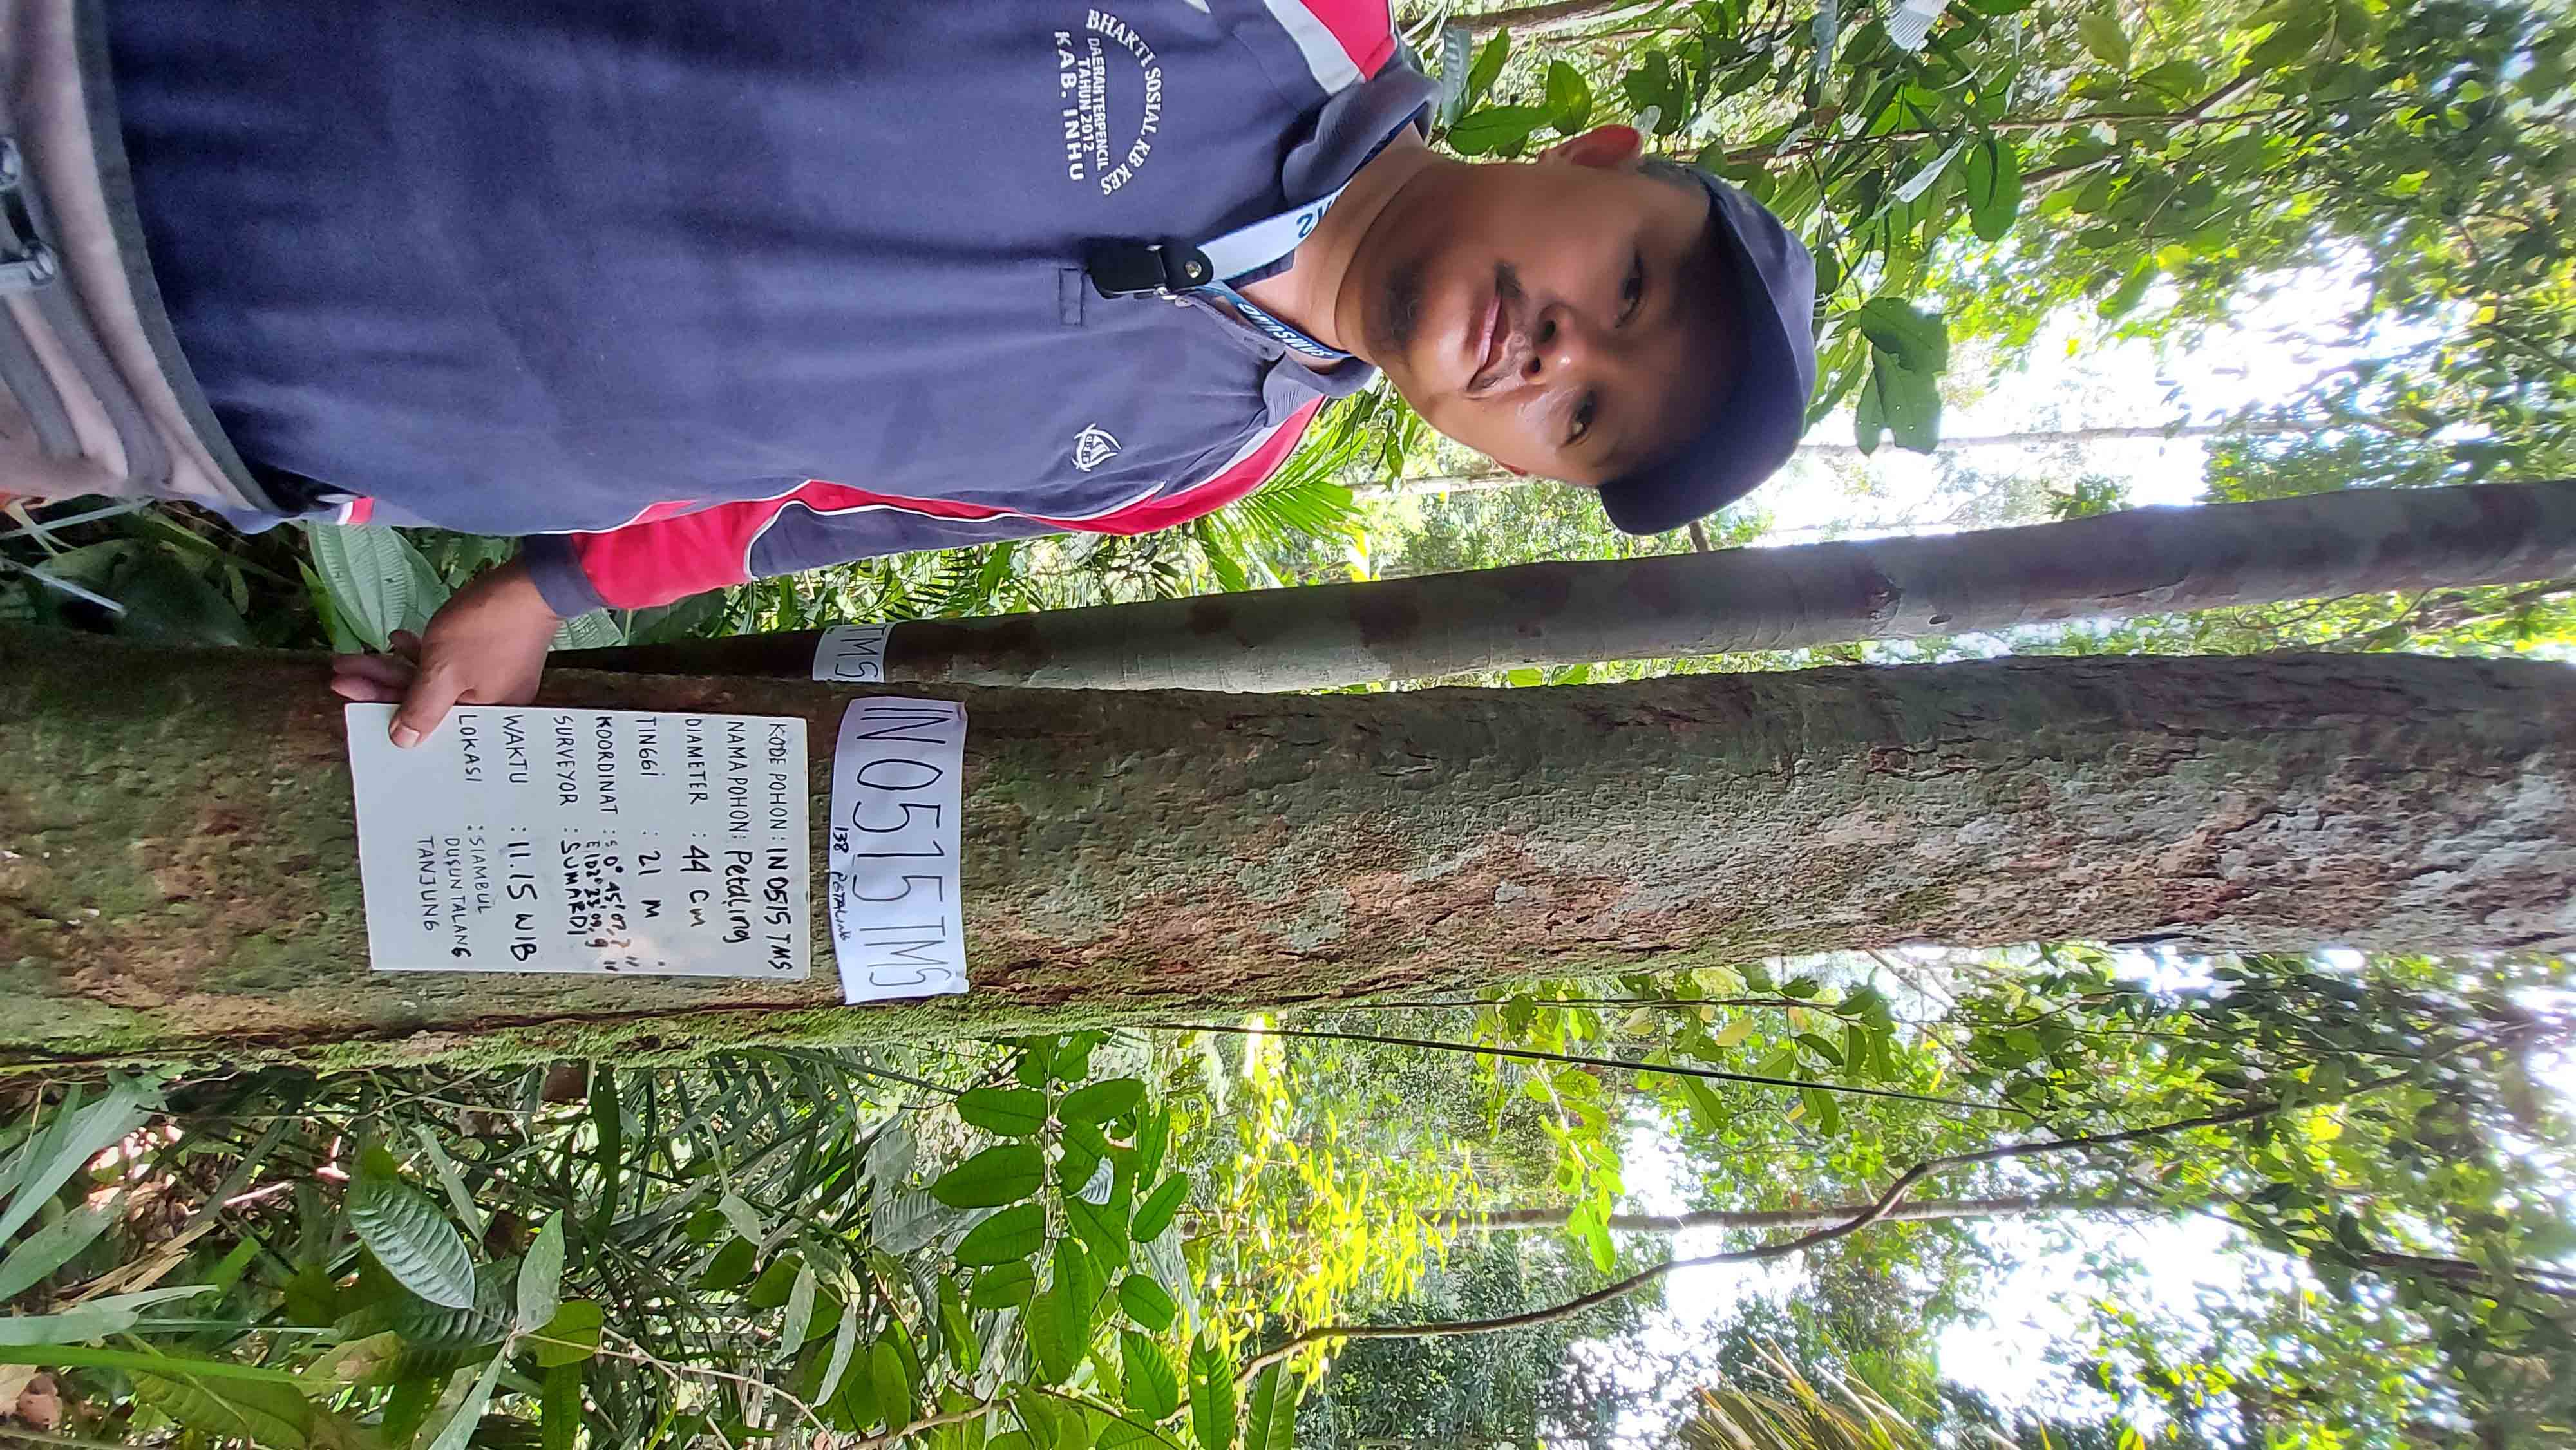 BHAKTI SOSIAL KB KES
DAERAH TERPENCIL
TAHUN 2012
KAB. INHU
SAMSUNG
TMS
IN0515TMS
138 PETALING
KODE POHON : IN 0515 TMS
NAMA POHON : Petaling
DIAMETER : 44 cm
TINGGI : 21 M
KOORDINAT : S 0° 45' 07,2"
E 102° 23' 09,9"
SURVEYOR : SUMARDI
WAKTU : 11.15 WIB
LOKASI : SIAMBUL
DUSUN TALANG
TANJUNG